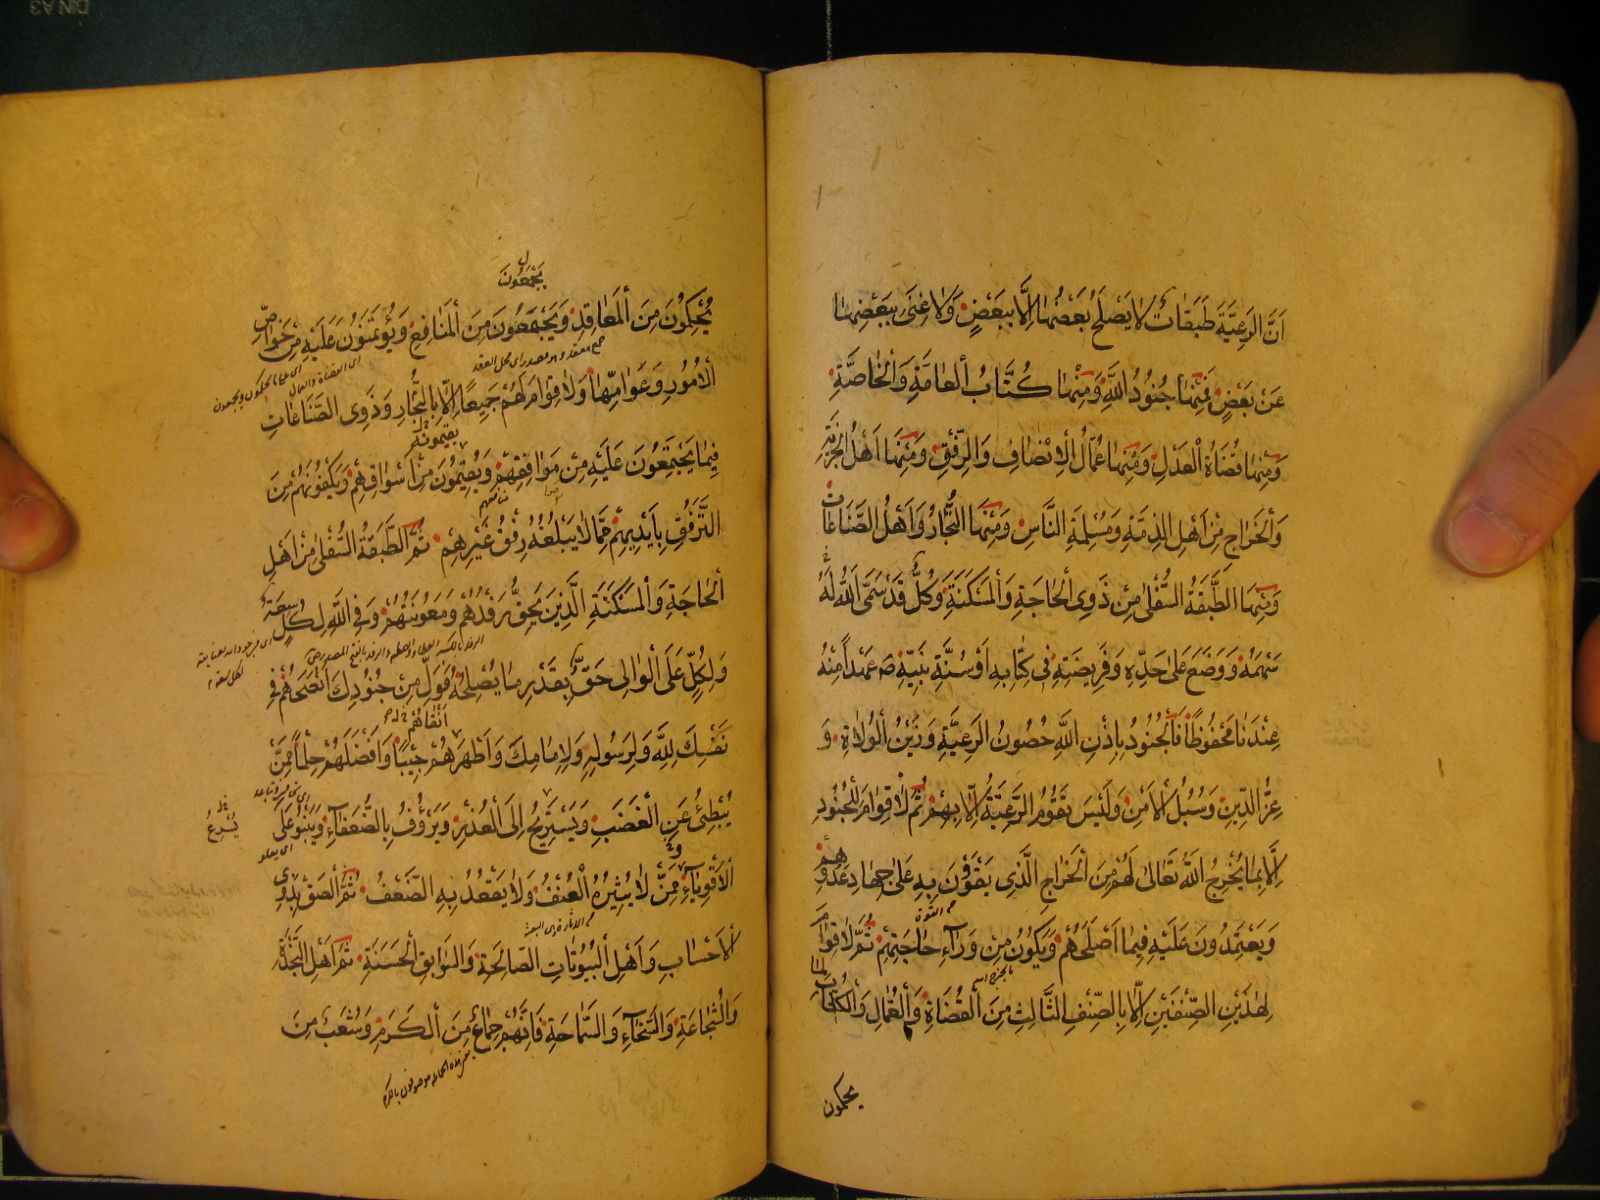 اَنَّ الرَعِيَّةَ طَبَقَاتٌ لَا يَصْلَحُ بَعْضُهَا اِلَّا بِبَعْضٍ وَلَا غِنَى بِبَعْضِهَا
عَنْ بَعْضٍ فَمِنْهَا جُنُودُ اللّٰهِ وَمِنْهَا كُتَّابُ الْعَامَّةِ وَالْخَاصَّةِ
وَمِنْهَا قُضَاةُ الْعَدْلِ وَمِنْهَا عُمَّالُ الْاِنْصَافِ وَالرِّفْقِ وَمِنْهَا اَهْلُ الْجِزْيَةِ
وَالْخَرَاجِ مِنْ اَهْلِ الذِّمَّةِ وَمُسْلِمَةِ النَّاسِ وَمِنْهَا التُّجَّارُ وَاَهْلُ الصَّنَاعَاتِ
وَمِنْهَا الطَّبَقَةُ السُّفْلٰى مِنْ ذَوِى الْحَاجَةِ وَالْمَسْكَنَةِ وَكُلٌّ قَدْ سَمَّى اللّٰهُ لَهُ
سَهْمَهُ وَوَضَعَ عَلٰى حَدِّهِ وَفَرِيضَتِهِ فِى كِتَابِهِ اَوْ سُنَّةِ نَبِيِّهِ ص عَهْدًا مِنْهُ
عِنْدَنَا مَحْفُوظًا فَالْجُنُودُ بِاِذْنِ اللّٰهِ حُصُونُ الرَّعِيَّةِ وَزَيْنُ الْوُلَاةِ وَ
عِزُّ الدِّينِ وَسُبُلُ الْاَمْنِ وَلَيْسَ تَقُومُ الرَّعِيَّةُ اِلَّا بِهِمْ ثُمَّ لَا قِوَامَ لِلْجُنُودِ
اِلَّا بِمَا يُخْرِجُ اللّٰهُ تَعَالٰى لَهُمْ مِنَ الْخَرَاجِ الَّذِى يَقْوَوْنَ بِهِ عَلٰى جِهَادِ عَدُوِّهِمْ
وَيَعْتَمِدُونَ عَلَيْهِ فِيمَا اَصْلَحَهُمْ وَيَكُونُ مِنْ وَرَآءِ حَاجَتِهِمْ ثُمَّ لَا قِوَامَ
لِهٰذَيْنِ الصِّنْفَيْنِ اِلَّا بِالصِّنْفِ الثَّالِثِ مِنَ الْقُضَاةِ وَالْعُمَّالِ وَالْكُتَّابِ لِمَا
يحكمون
يَجْمَعُونَ
يُحْكِمُونَ مِنَ الْمَعَاقِدِ وَيَجْتَمِعُونَ مِنَ الْمَنَافِعِ وَيُؤْتَمَنُونَ عَلَيْهِ مِنْ خَوَاصِّ
جمع معقد وهو مصدر اى محل العقد
الْاُمُورِ وَعَوَامِّهَا وَلَا قِوَامَ لَهُمْ جَمِيعًا اِلَّا بِالتُّجَّارِ وَذَوِى الصَّنَاعَاتِ
يقيمونه
فِيمَا يَجْتَمِعُونَ عَلَيْهِ مِنْ مَوَافِقِهِمْ وَيُقِيمُونَ مِنْ اَسْوَاقِهِمْ وَيَكْفُونَهُمْ مِنَ
منافعهم
التَّرَفُّقِ بِاَيْدِيهِمْ مِمَّا لَا يَبْلُغُهُ رِفْقُ غَيْرِهِمْ ثُمَّ الطَّبَقَةُ السُّفْلٰى مِنْ اَهْلِ
الْحَاجَةِ وَالْمَسْكَنَةِ الَّذِينَ يَحِقُّ رِفْدُهُمْ وَمَعُونَتُهُمْ وَفِى اللّٰهِ لِكُلٍّ سَعَةٌ
وَلِكُلٍّ عَلَى الْوَالِى حَقٌّ بِقَدْرِ مَا يُصْلِحُهُ فَوَلِّ مِنْ جُنُودِكَ اَنْصَحَهُمْ فِى
اَنْقَاهُمْ
نَفْسِكَ لِلّٰهِ وَلِرَسُولِهِ وَلِاِمَامِكَ وَاَطْهَرَهُمْ جَيْبًا وَاَفْضَلَهُمْ حِلْمًا مِمَّنْ
يُبْطِئُ عَنِ الْغَضَبِ وَيَسْتَرِيحُ اِلَى الْعُذْرِ وَيَرْؤُفُ بِالضُّعَفَآءِ وَيَنْبُو عَلَى
الْاَقْوِيَآءِ مِمَّنْ لَا يُثِيرُهُ الْعُنْفُ وَلَا يَقْعُدُ بِهِ الضَّعْفُ ثُمَّ الْصَقْ بِذَوِى
الْاَحْسَابِ وَاَهْلِ الْبُيُوتَاتِ الصَّالِحَةِ وَالسَّوَابِقِ الْحَسَنَةِ ثُمَّ اَهْلِ النَّجْدَةِ
وَالشَّجَاعَةِ وَالسَّخَآءِ وَالسَّمَاحَةِ فَاِنَّهُمْ جِمَاعٌ مِنَ الْكَرَمِ وَشُعَبٌ مِنَ